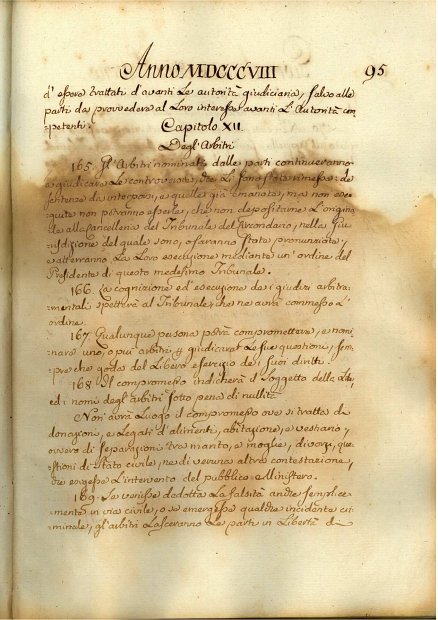 Anno MDCCCVIII 95
d'essere trattati d'avanti Le autorità giudiciarie, salvo alle
parti da provvedere al Loro interesse avanti L'Autorità com=
=petenti.
Capitolo XII.
Degl'Arbitri
165. Gl'Arbitri nominati dalle parti continueranno
a giudicare Le controversie, che Le sono state rimesse: Le
sentenze da interporsi, e quelle già emanate, ma non ese=
guite non potranno esserlo, che non depositarne L'origina
le alla Cancelleria del Tribunale del Circondario, nella Giu
risdizione del quale sono, o saranno state pronunziate,
e otterranno La Loro esecuzione mediante un'ordine del
Presidente di questo medesimo Tribunale.
166. La cognizione ed'esecuzione de i giudizi arbitra=
=mentali spetterà al Tribunale che ne avrà commesso L'
ordine.
167. Qualunque persona potrà compromettere, e nomi=
nare uno, o più arbitri p giudicare Le sue questioni, sem=
pre che goda del Libero esercizio de' suoi diritti.
168. Il compromesso indicherà il Soggetto della Lite,
ed i nomi degl'arbitri sotto pena di nullità.
Non avrà Luogo il compromesso ove si tratta di
donazioni, e Legati d'alimenti, abitazione, e vestiario,
ovvero di separazioni tra marito, e moglie, divorzi, que=
stioni di stato civile, ne di veruna altra contestazione,
che esigesse L'intervento del pubblico Ministero.
169. Se venisse dedotta La falsità anche semplice=
mente in via civile, o se emergesse qualche incidente cri
minale, gl'arbitri Lasceranno Le parti in Libertà di